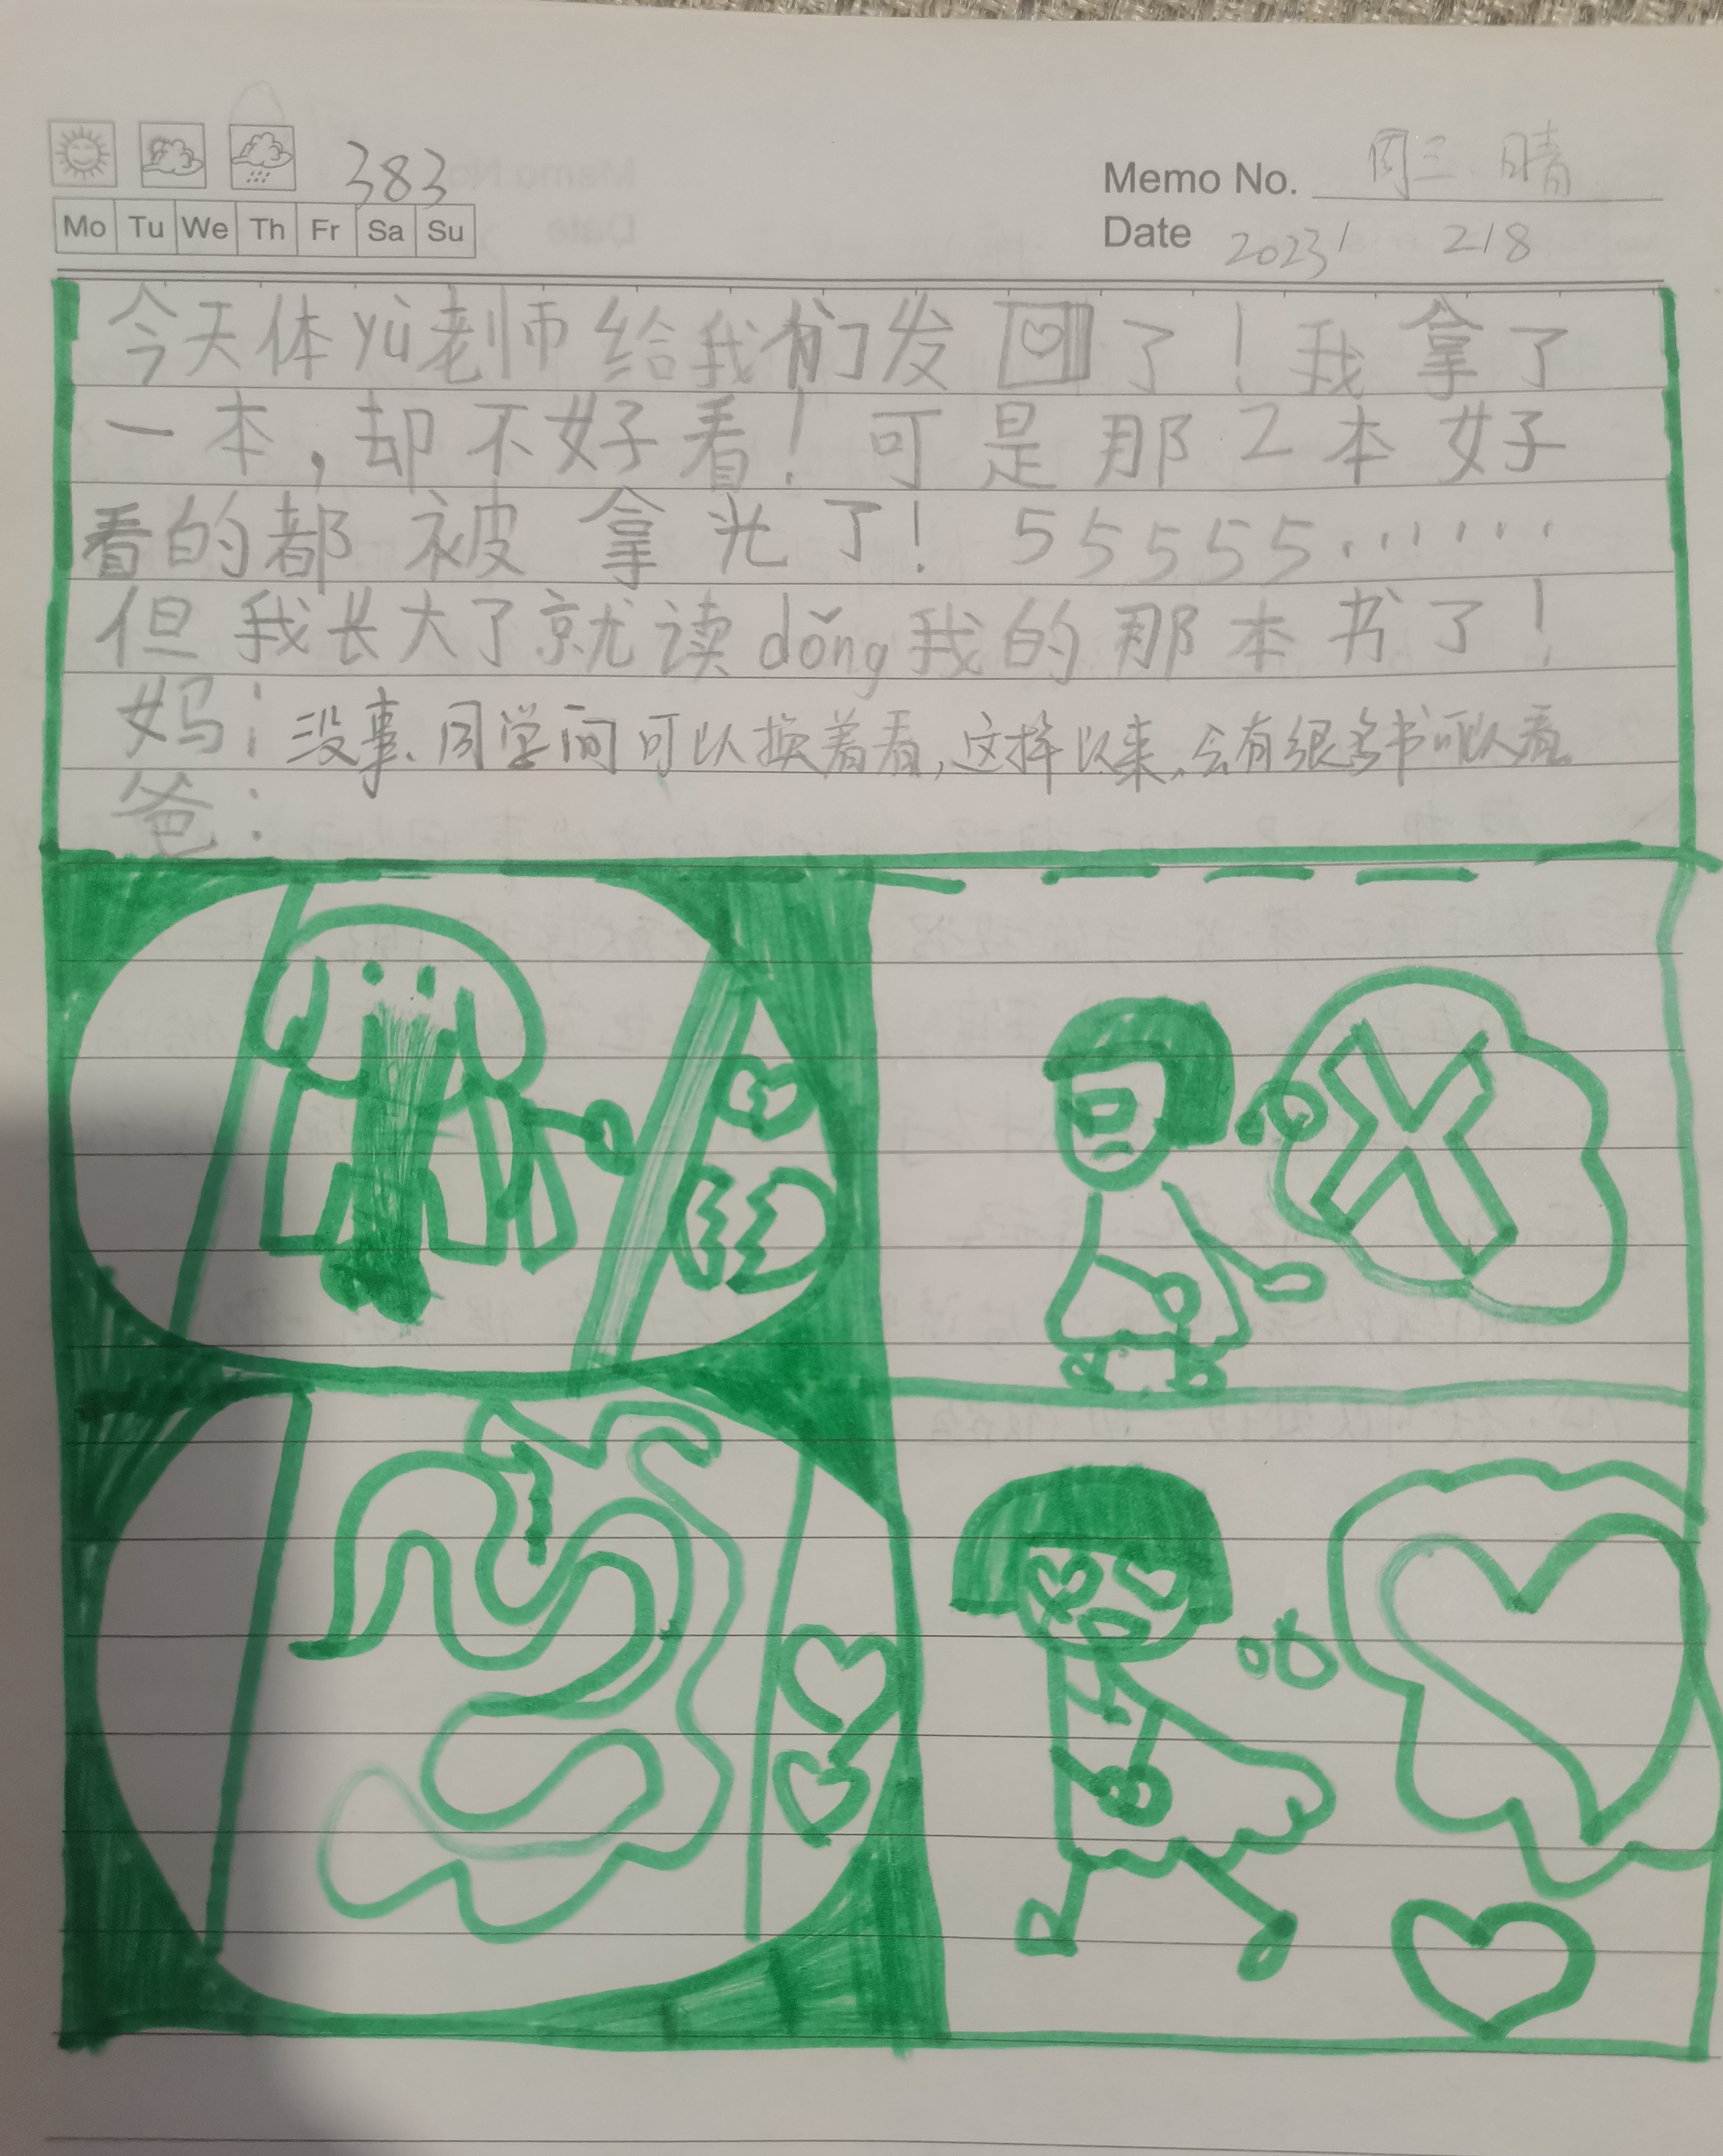 383
Mo Tu We Th Fr Sa Su
Memo No. 周三 晴
Date 2023/ 2/8
今天体yù老师给我们发了!我拿了
一本,却不好看!可是那2本好
看的都被拿光了!55555······
但我长大了就读dǒng我的那本书了!
妈:没事、同学间可以换着看,这样以来,会有很多书可以看。
爸: